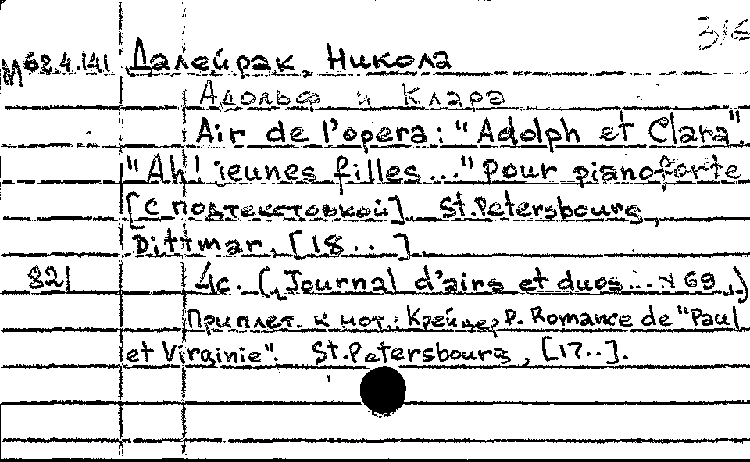 3/6
М62.4.141 Далейрак, Никола
Адольф и Клара
Air de l'opera: "Adolph et Clara".
"Ah! jeunes filles..." pour pianoforte
[с подтекстовкой] St.Petersbourg,
Dittmar, [18..].
821 4с. („Journal d'airs et duos...№69„)
Приплет. к нот.: Крейцер, Р. Romance de "Paul
et Virginie". St.Petersbourg, [17..].